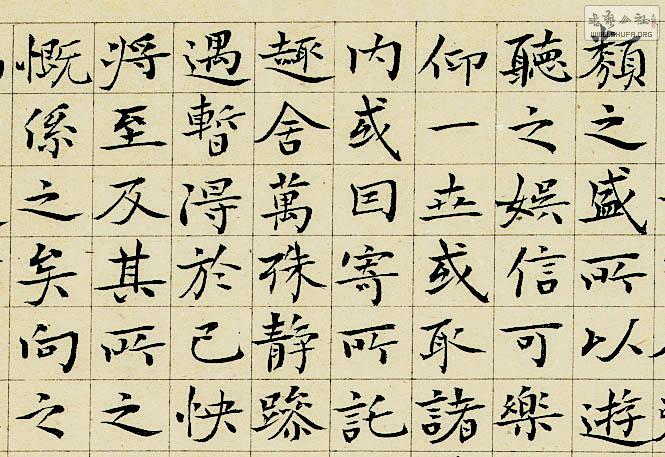 類之盛所以遊
聽之娛信可樂
仰一世或取諸
内或因寄所託
趣舍萬殊静躁
遇暫得於己快
将至及其所之
慨係之矣向之
WWW.SHUFA.ORG